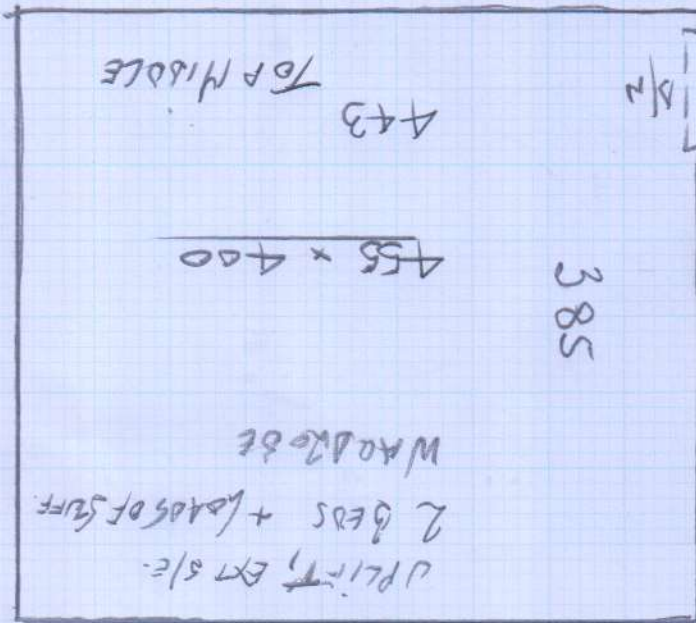 UPLIFT, EXT S/E.
2 BEDS + LOADS OF STUFF.
WARDROBE
455 x 400
385
443
TOP MIDDLE